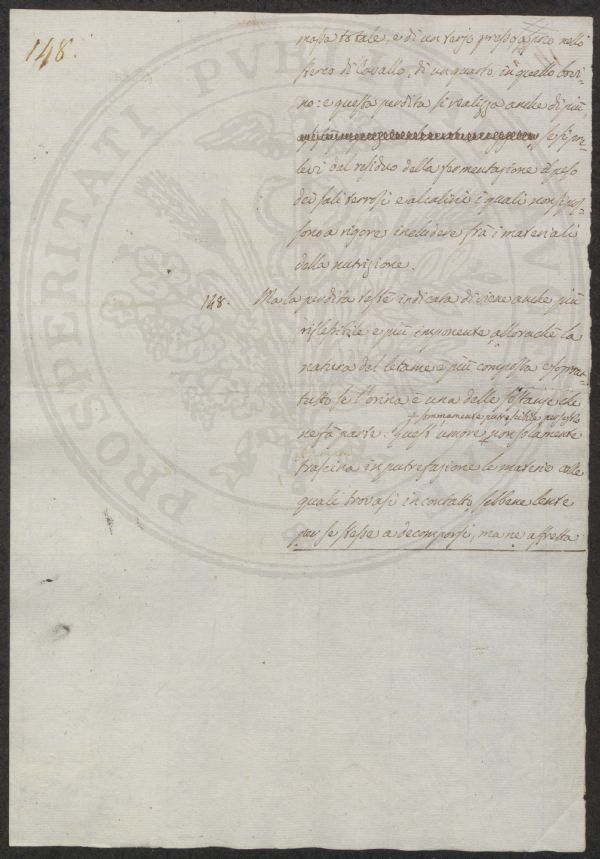 148.
massa totale, e di un terzo presso a poco nello
sterco di Cavallo, di un quarto in quello bovi-
no: e questa perdita si realizza anche di più,
se si pre-
levi dal residuo della fermentazione il peso
dei sali terrosi e alcalini i quali non si pos-
sono a rigore includere fra i materiali
della nutrizione.
148. Ma la perdita testè indicata diviene anche più
riflessibile e più imponente, allorachè la
natura del letame è più composta e sopra-
tutto se l'orina è una delle sostanze che
+ sommamente putrescibile per se stesso
ne fà parte: Quest'umore + non solamente
trascina in putrefazione le materie colle
quali trovasi in contatto, sebbene lente
per se stesse a decomporsi, ma ne affretta
PROSPERITATI PVBLICAE